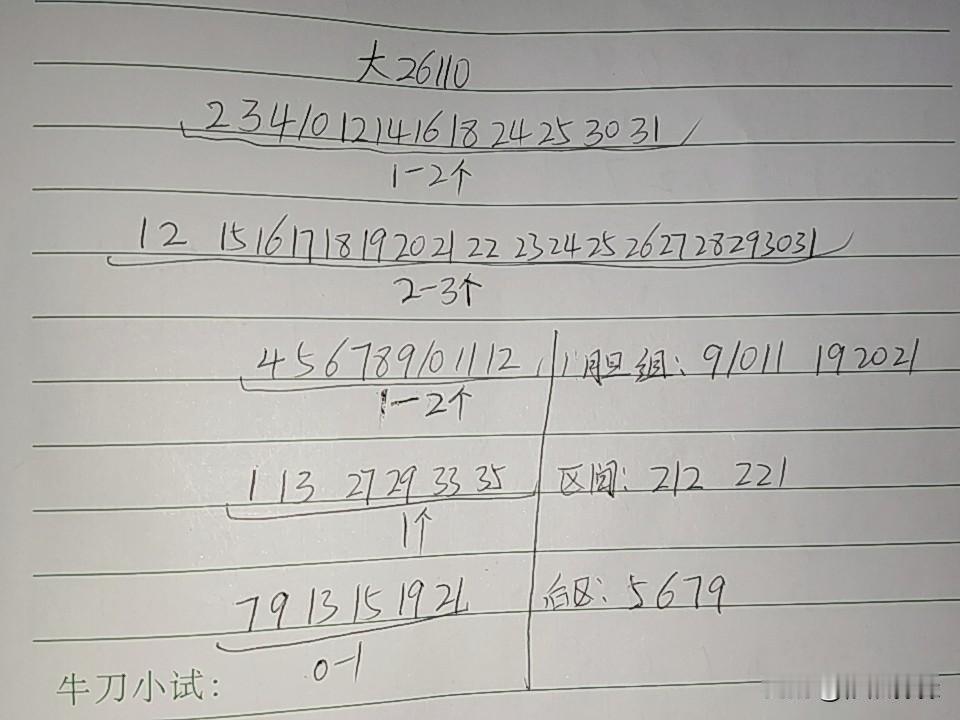 大26110
2 3 4 10 12 14 16 18 24 25 30 31
1-2个
12 15 16 17 18 19 20 21 22 23 24 25 26 27 28 29 30 31
2-3个
4 5 6 7 8 9 10 11 12 胆组: 9 10 11 19 20 21
1-2个
1 13 27 29 33 35 区间: 212 221
1个
7 9 13 15 19 21 后区: 5 6 7 9
0-1
牛刀小试: